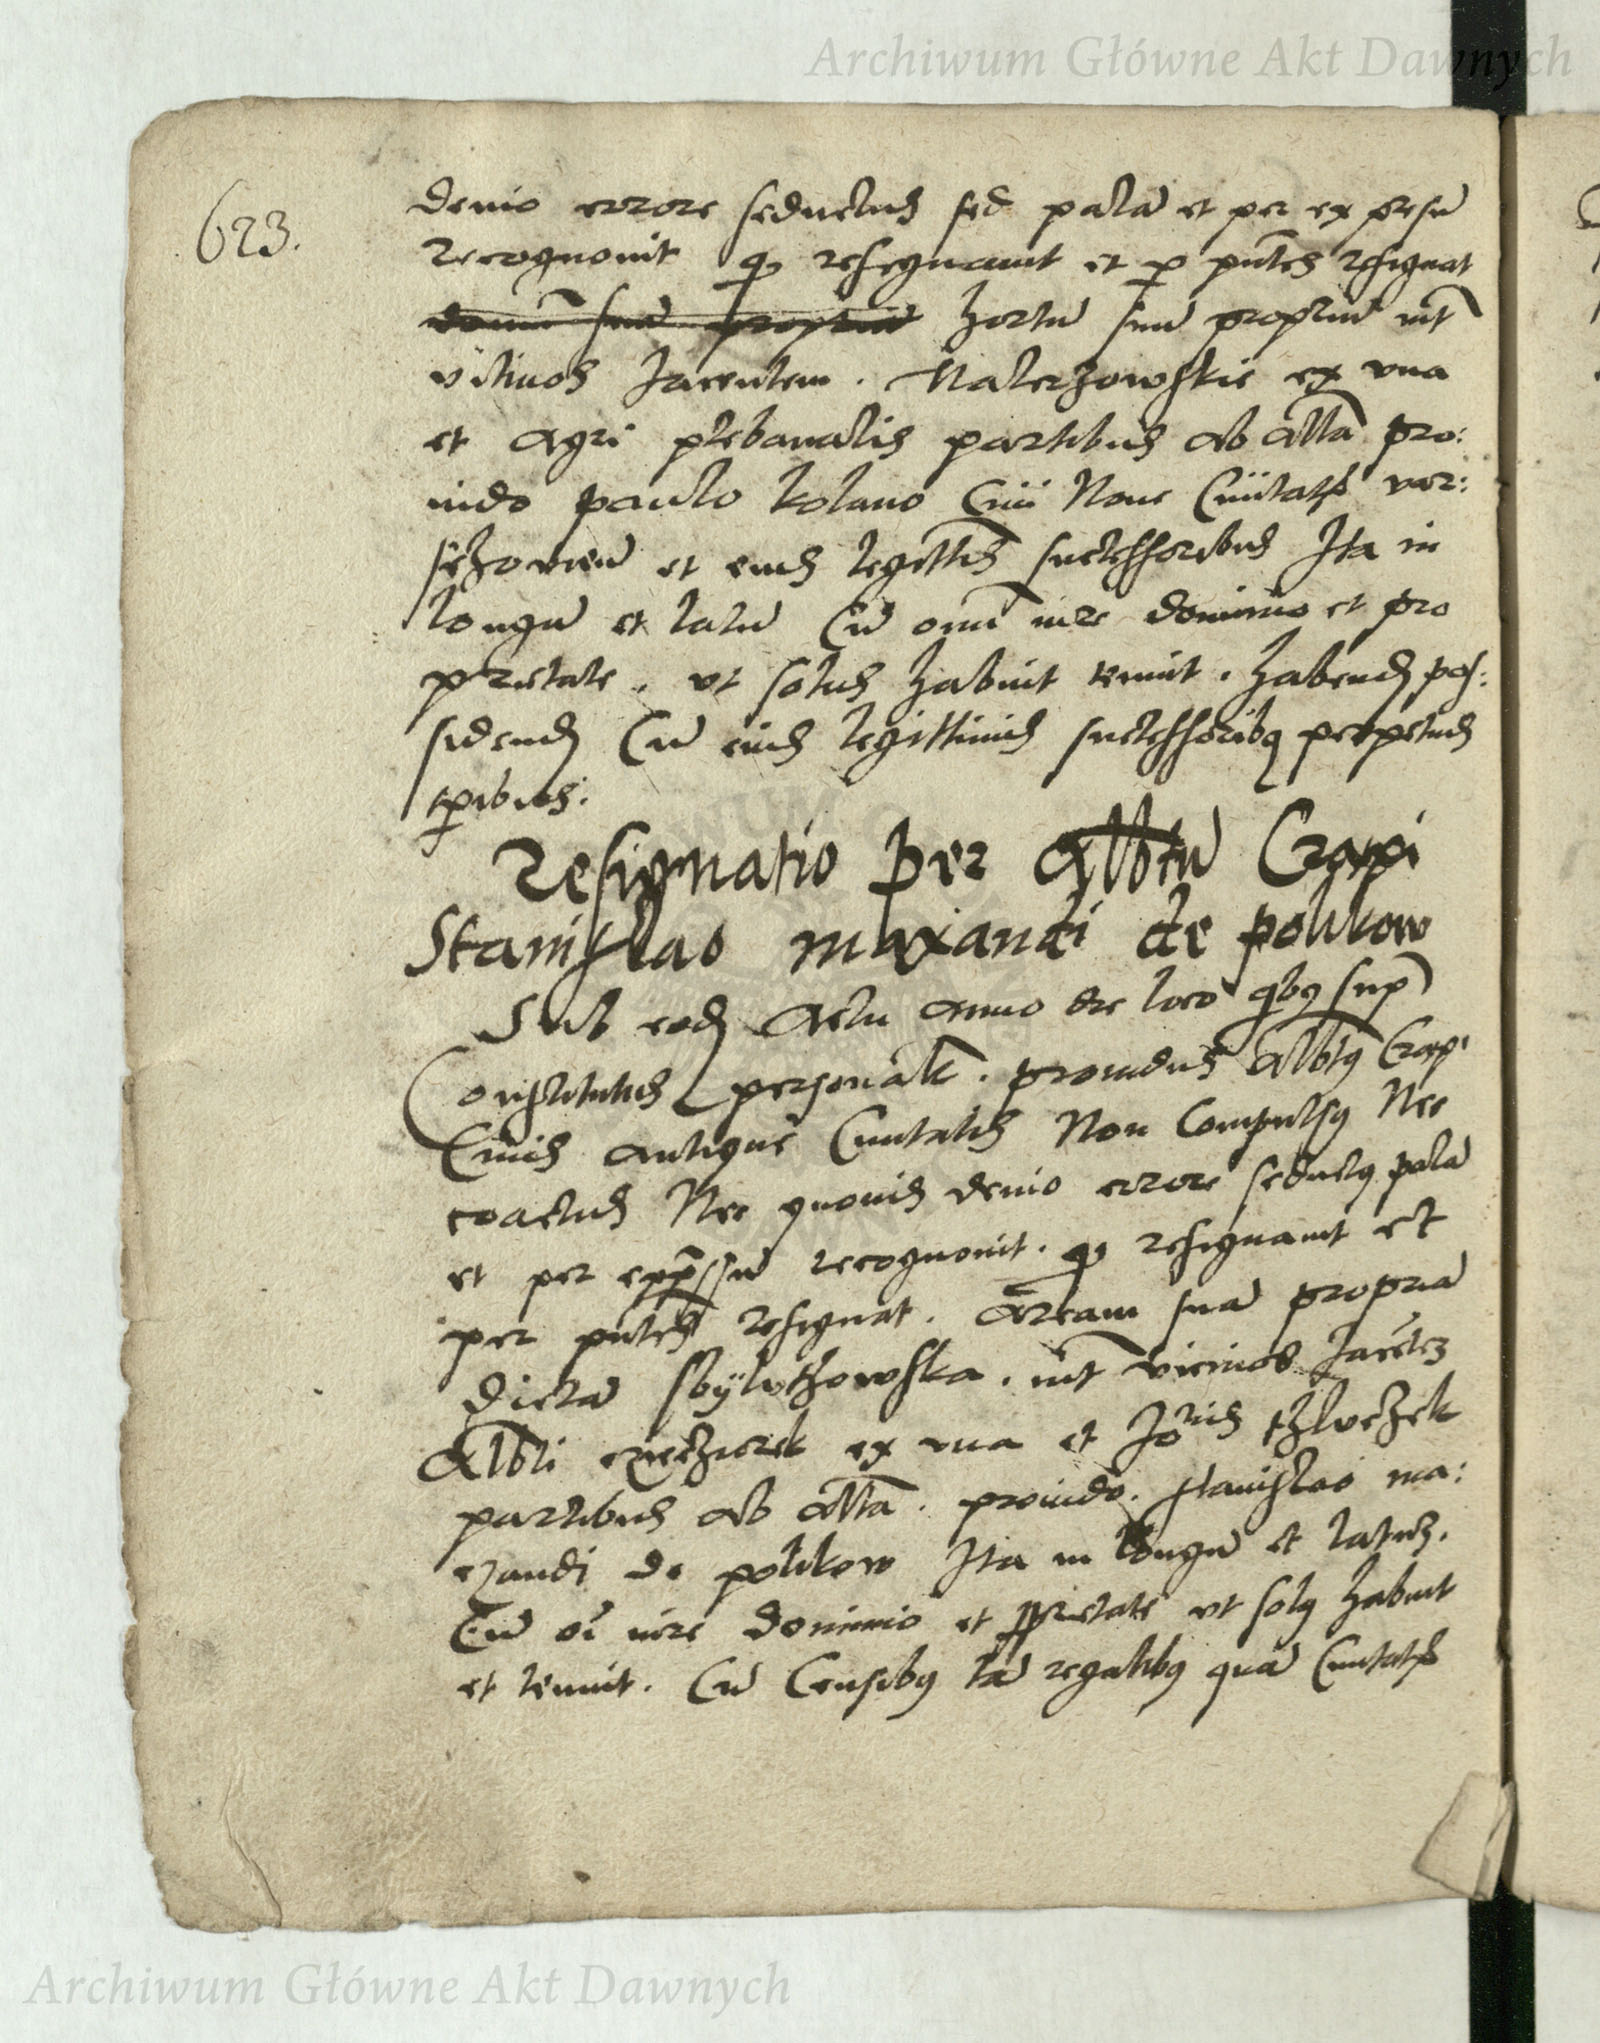 Archiwum Główne Akt Dawnych
623.
devio errore seductus sed pala et per expressu
recognovit q resignavit et p pntes resignat
domu sua propria hortu suu propriu int
vicinos Jacentem. Materzowskie ex una
et agri plebanalis partibus ab alta pro:
vido paulo kolano Civi Nove Civitatis var:
et eius legittis successoribus Ita in
longu et latu Cu omi iure dominio et pro
prietate. ut solus habuit tenuit. habend pos:
sidend Cu eius legittimis successoribq perpetuis
tpibus:
Resignatio per Albtu Crapi
Stanislao maxandi de polikow
Sub eode Actu anno die loco qbq sup
Constitutus personalr. providus Albtq Crapi
Civis antique Civitatis Non Compulsq Nec
coactus Nec quovis devio errore seductq pala
et per expssu recognovit. q resignavit et
per pntes resignat. Aream sua propria
dicta. int vicinos Jacetez
Albti ex una et Jois
partibus ab alta. provido. stanislao ma:
xandi de polikow Ita in longu et latuz.
Cu oi iure dominio et pprietate ut solq habuit
et tenuit. Cu Censibq ta regalibq qua Civitatis
Archiwum Główne Akt Dawnych